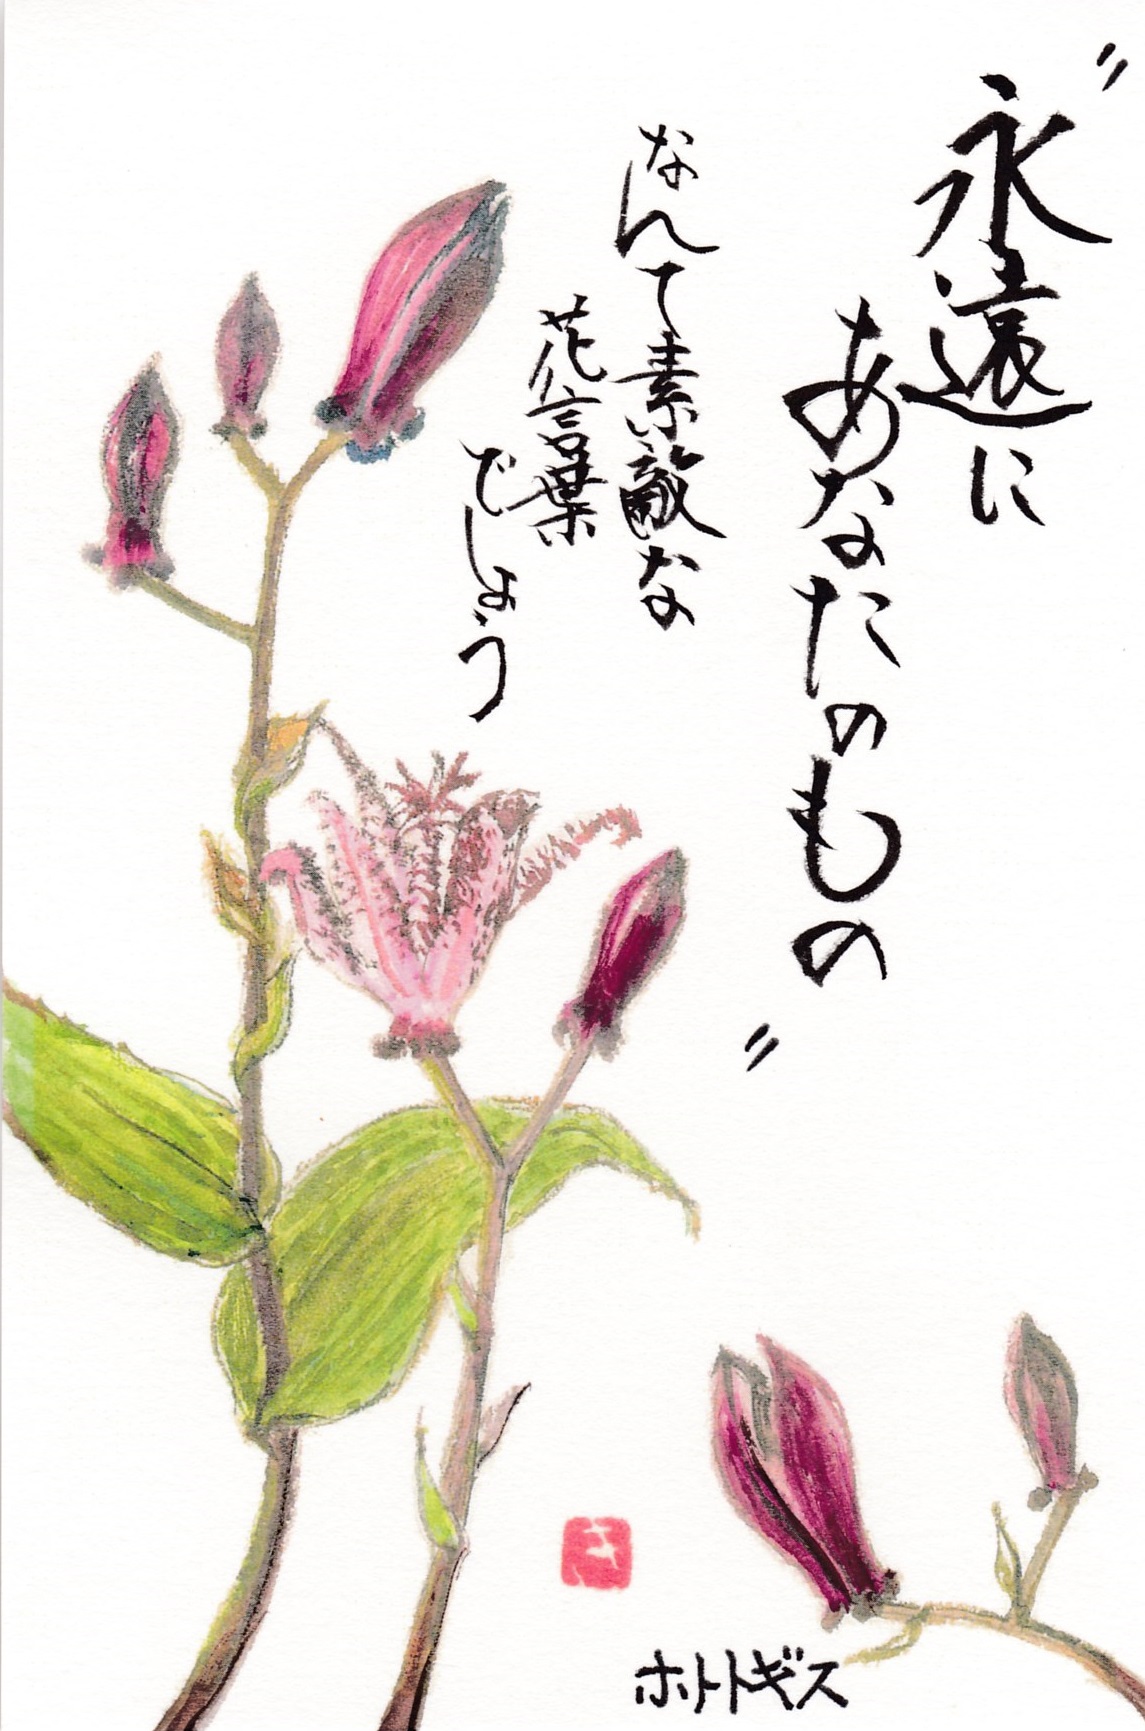 〃永遠に
あなたのもの〃
なんて素敵な
花言葉
でしょう
ホトトギス